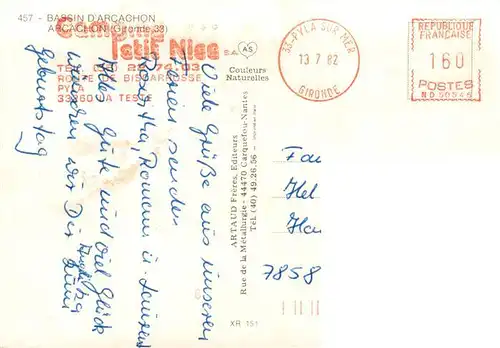 457 - BASSIN D'ARCACHON
ARCACHON (Gironde 33)
Camping
Petit Nice
S.A.
TEL (56) 22.74.03
ROUTE DE BISCARROSSE
PYLA
33260 LA TESTE
AS
Couleurs
Naturelles
33-PYLA SUR MER
13 7 82
GIRONDE
REPUBLIQUE
FRANCAISE
160
POSTES
ND 50546
Viele Grüße aus unseren
Ferien senden
Roswitha, Rowena u.
Alles Gute und viel Glück
wünschen wir Dir zum
Geburtstag
ARTAUD Frères, Editeurs
Rue de la Métallurgie - 44470 Carquefou-Nantes
Tél. (40) 49.26.56
Fa
Hel
Ha
7858
XR 151